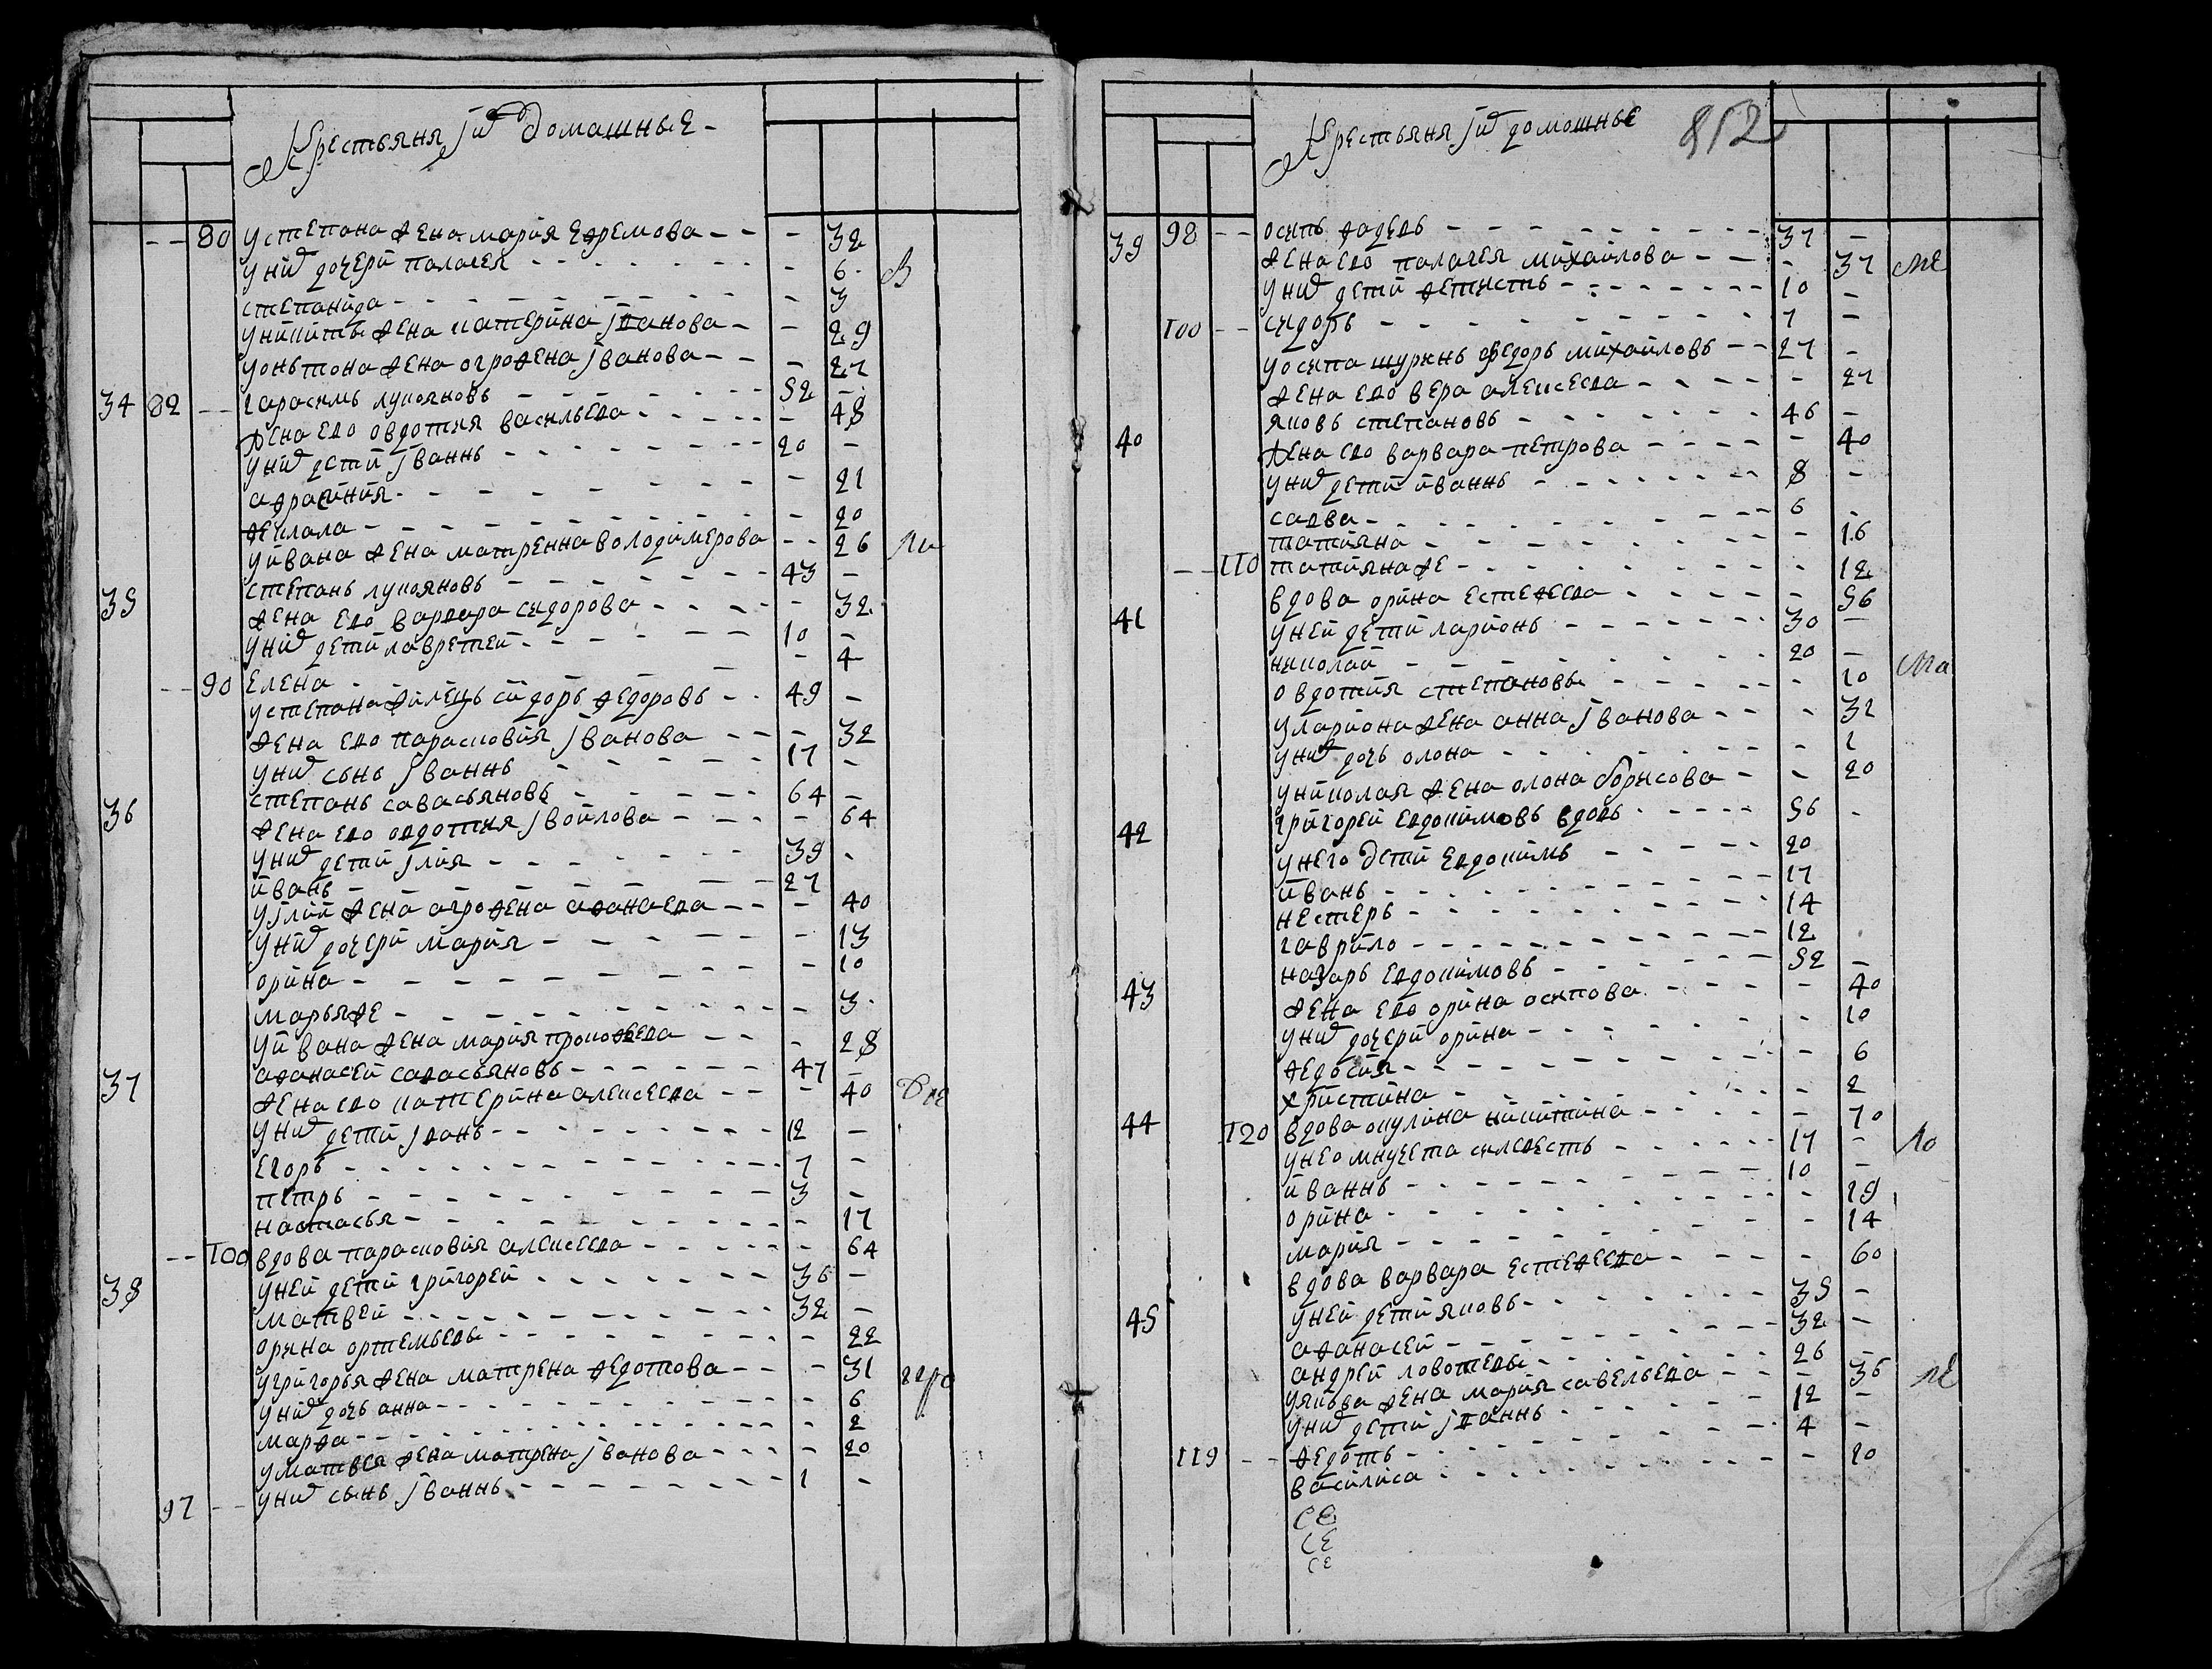 Крестьяня и их домашные
80 у степана жена мария ефремова - 32
у них дочери палагея - 6
степанида - 3
у никиты жена катерина иванова - 29
у онътона жена огрофена иванова - 27
34 82 гарасимъ лукояновъ 52 -
жена ево овдотия васильева - 48
у них дети иваннъ 20 -
афрасиния - 21
фекла - 20
у ивана жена матренна володимерова - 26
35 степанъ лукояновъ 43 -
жена ево варвара сидорова - 32
у них дети лаврентей 10 -
90 елена - 4
у степана жилецъ сидоръ федоровъ 49 -
жена ево парасковия иванова - 32
у них сынъ иваннъ 17 -
36 степанъ савасьяновъ 64 -
жена ево овдотия - 64
у них дети илия 39 -
иванъ 27
у илии жена агрофена афанасева - 40
у них дочери мария - 13
орина - 10
марья же - 3
у ивана жена мария прокофьева - 28
37 афанасей савасьяновъ 47 -
жена ево катерина алексеева - 40
у них дети иванъ 12 -
егоръ 7 -
петръ 3 -
настасья - 17
100 вдова парасковия алексеева - 64
38 у ней дети григорей 36 -
матвей 32 -
орина ортемьева - 22
у григорья жена матрена федотова - 31
у них дочь анна - 6
марфа - 2
у матвея жена матрена иванова - 20
97 у них сынъ иваннъ 1 -
Крестьяня и их домошные 852
39 98 осипъ фадеевъ 37 -
жена ево палагея михайлова - 37
у них дети 10 -
100 сидоръ 7 -
у осипа шуринъ федоръ михайловъ 27 -
жена ево вера алексеева - 27
40 яковъ степановъ 46 -
жена ево варвара петрова - 40
у них дети иваннъ 8 -
савва 6 -
татияна - 16
110 татияна же - 12
41 вдова орина естефеева - 56
у ней дети ларионъ 30 -
николай 20 -
овдотия степановы - 10
у лариона жена анна иванова - 32
у них дочь олона - 1
у николая жена олона борисова - 20
42 григорей евдокимовъ вдовъ 56 -
у него дети евдокимъ 20
иванъ 17
нестеръ 14
гаврило 12
43 назаръ евдокимовъ 52 -
жена ево орина осипова - 40
у них дочери орина - 10
федосия - 6
христина - 2
44 120 вдова окулина никитина - 70
у нео внучета силвестъ 17 -
иваннъ 10 -
орина - 19
мария - 14
45 вдова варвара естефеева - 60
у ней дети яковъ 35 -
афанасей 32 -
андрей 26 -
у якова жена мария савельева - 36
у них дети иваннъ 12 -
119 федотъ 4 -
василиса - 10
се
се
се